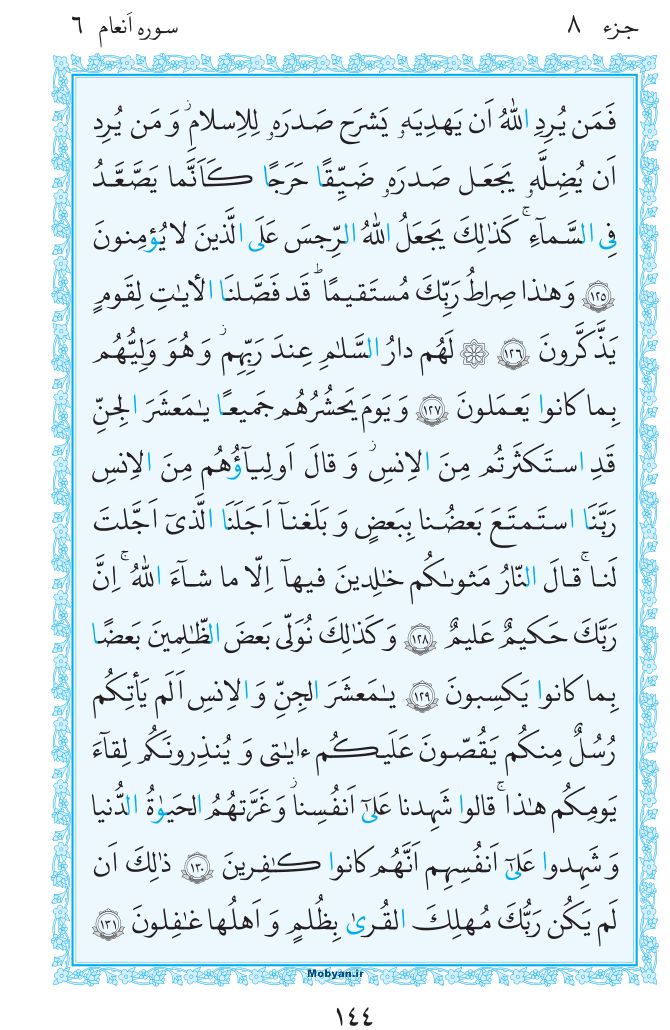 جزء ٨ سوره أنعام ٦
فَمَن يُرِدِ اللهُ اَن يَهدِيَهۥ يَشرَح صَدرَهۥ لِلاِسلامِ ۖ وَ مَن يُرِد
اَن يُضِلَّهۥ يَجعَل صَدرَهۥ ضَيِّقًا حَرَجًا كَاَنَّما يَصَّعَّدُ
فِى السَّماءِ ۚ كَذٰلِكَ يَجعَلُ اللهُ الرِّجسَ عَلَى الَّذينَ لا يُؤمِنونَ
﴿١٢٥﴾ وَ هٰذا صِراطُ رَبِّكَ مُستَقيمًا ۗ قَد فَصَّلنَا الأياتِ لِقَومٍ
يَذَّكَّرونَ ﴿١٢٦﴾ ۞ لَهُم دارُ السَّلامِ عِندَ رَبِّهِم ۖ وَ هُوَ وَلِيُّهُم
بِما كانوا يَعمَلونَ ﴿١٢٧﴾ وَ يَومَ يَحشُرُهُم جَميعًا يٰمَعشَرَ الجِنِّ
قَدِ استَكثَرتُم مِنَ الاِنسِ ۖ وَ قالَ اَولِياؤُهُم مِنَ الاِنسِ
رَبَّنَا استَمتَعَ بَعضُنا بِبَعضٍ وَ بَلَغنآ اَجَلَنَا الَّذىٓ اَجَّلتَ
لَنا ۚ قالَ النّارُ مَثوىٰكُم خٰلِدينَ فيهآ اِلّا ما شآءَ اللهُ ۚ اِنَّ
رَبَّكَ حَكيمٌ عَليمٌ ﴿١٢٨﴾ وَ كَذٰلِكَ نُوَلّى بَعضَ الظّٰلِمينَ بَعضًا
بِما كانوا يَكسِبونَ ﴿١٢٩﴾ يٰمَعشَرَ الجِنِّ وَ الاِنسِ اَلَم يَأتِكُم
رُسُلٌ مِنكُم يَقُصّونَ عَلَيكُم ءايٰتى وَ يُنذِرونَكُم لِقآءَ
يَومِكُم هٰذا ۚ قالوا شَهِدنا عَلىٰٓ اَنفُسِنا ۖ وَ غَرَّتهُمُ الحَيوٰةُ الدُّنيا
وَ شَهِدوا عَلىٰٓ اَنفُسِهِم اَنَّهُم كانوا كٰفِرينَ ﴿١٣٠﴾ ذٰلِكَ اَن
لَم يَكُن رَبُّكَ مُهلِكَ القُرىٰ بِظُلمٍ وَ اَهلُها غٰفِلونَ ﴿١٣١﴾
Mobyan.ir
١٤٤